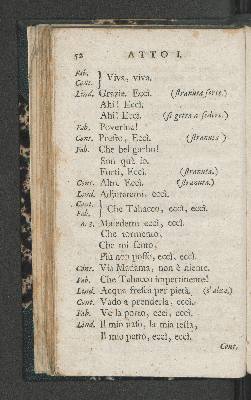 52 ATTO I.
Fab.
Cont. } Viva, viva.
Lind. Grazie. Eccì. (stranuta forte.)
Ahi! Eccì.
Ahi! Eccì. (si getta a sedere.)
Fab. Poverina!
Cont. Presto, Eccì. (stranuta.)
Fab. Che bel garbo!
Son quà io.
Forti, Eccì. (stranuta.)
Cont. Altro Eccì. (stranuta.)
Lind. Ajutatemi, eccì.
Cont.
Fab. } Che Tabacco, eccì, eccì.
a. 3. Maledetto eccì, eccì.
Che tormento,
Che mi sento,
Più non posso, eccì, eccì.
Cont. Via Madama, non è niente.
Fab. Che Tabacco impertinente!
Lind. Acqua fresca per pietà. (s'alza.)
Cont. Vado a prenderla, eccì.
Fab. Ve la porto, eccì, eccì.
Lind. Il mio naso, la mia testa,
Il mio petto, eccì, eccì.
Cont.